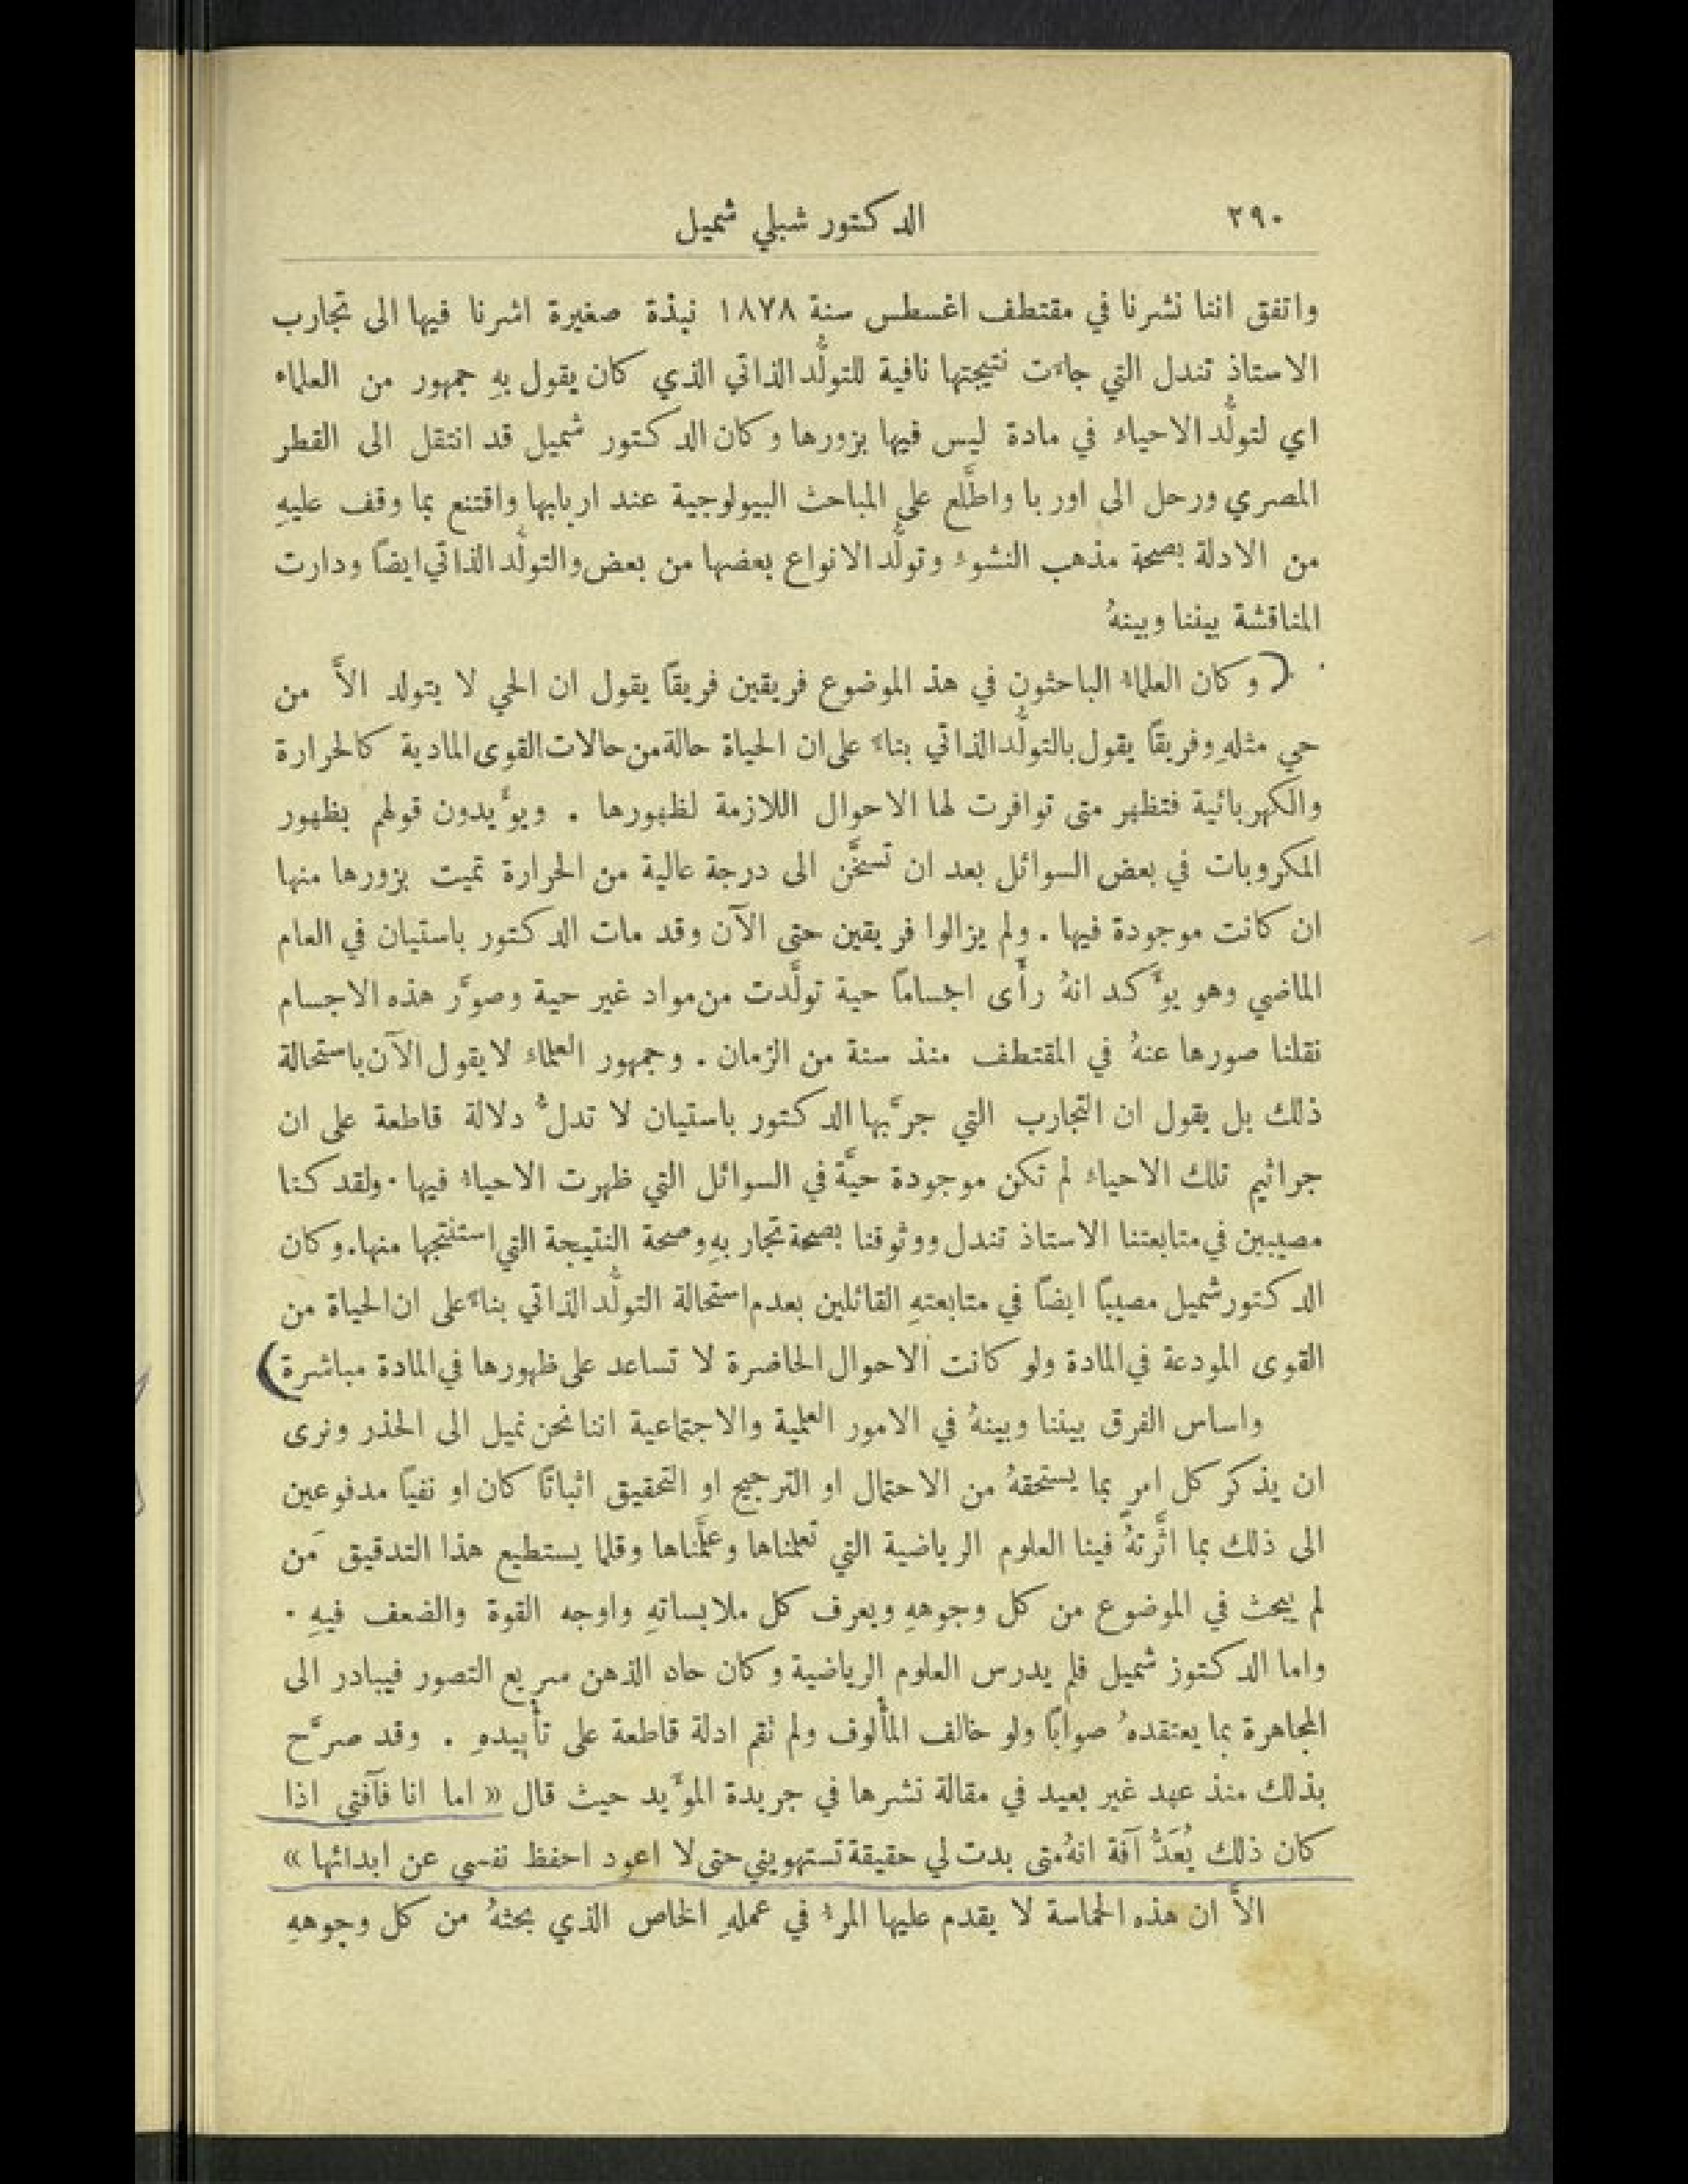 ٢٩٠ الدكتور شبلي شميل
واتفق اننا نشرنا في مقتطف اغسطس سنة ١٨٧٨ نبذة صغيرة اشرنا فيها الى تجارب
الاستاذ تندل التي جاءت نتيجتها نافية للتولُّد الذاتي الذي كان يقول بهِ جمهور من العلماء
اي لتولُّد الاحياء في مادة ليس فيها بزورها وكان الدكتور شميل قد انتقل الى القطر
المصري ورحل الى اوربا واطَّلع على المباحث البيولوجية عند اربابها واقتنع بما وقف عليهِ
من الادلة بصحة مذهب النشوء وتولُّد الانواع بعضها من بعض والتولُّد الذاتي ايضاً ودارت
المناقشة بيننا وبينهُ
( وكان العلماء الباحثون في هذ الموضوع فريقين فريقاً يقول ان الحي لا يتولد الاَّ من
حي مثلهِ وفريقاً يقول بالتولُّد الذاتي بناءً على ان الحياة حالة من حالات القوى المادية كالحرارة
والكهربائية فتظهر متى توافرت لها الاحوال اللازمة لظهورها . ويؤَيدون قولهم بظهور
المكروبات في بعض السوائل بعد ان تسخَّن الى درجة عالية من الحرارة تميت بزورها منها
ان كانت موجودة فيها . ولم يزالوا فريقين حتى الآن وقد مات الدكتور باستيان في العام
الماضي وهو يؤَكد انهُ رأَى اجساماً حية تولَّدت من مواد غير حية وصوَّر هذه الاجسام
نقلنا صورها عنهُ في المقتطف منذ سنة من الزمان . وجمهور العلماء لا يقول الآن باستحالة
ذلك بل يقول ان التجارب التي جرَّبها الدكتور باستيان لا تدلُّ دلالة قاطعة على ان
جراثيم تلك الاحياء لم تكن موجودة حيَّة في السوائل التي ظهرت الاحياء فيها . ولقد كنا
مصيبين في متابعتنا الاستاذ تندل ووثوقنا بصحة تجاربهِ وصحة النتيجة التي استنتجها منها. وكان
الدكتور شميل مصيباً ايضاً في متابعتهِ القائلين بعدم استحالة التولُّد الذاتي بناءً على ان الحياة من
القوى المودعة في المادة ولو كانت الاحوال الحاضرة لا تساعد على ظهورها في المادة مباشرة )
واساس الفرق بيننا وبينهُ في الامور العلمية والاجتماعية اننا نحن نميل الى الحذر ونرى
ان يذكر كل امرٍ بما يستحقهُ من الاحتمال او الترجيح او التحقيق اثباتاً كان او نفياً مدفوعين
الى ذلك بما اثَّرتهُ فينا العلوم الرياضية التي تعلمناها وعلَّمناها وقلما يستطيع هذا التدقيق مَن
لم يبحث في الموضوع من كل وجوههِ ويعرف كل ملابساتهِ واوجه القوة والضعف فيهِ .
واما الدكتوز شميل فلم يدرس العلوم الرياضية وكان حاد الذهن سريع التصور فيبادر الى
المجاهرة بما يعتقدهُ صواباً ولو خالف المأْلوف ولم نقم ادلة قاطعة على تأْييدهِ . وقد صرَّح
بذلك منذ عهد غير بعيد في مقالة نشرها في جريدة المؤَيد حيث قال « اما انا فآفتي اذا
كان ذلك يُعَدُّ آفة انهُ متى بدت لي حقيقة تستهويني حتى لا اعود احفظ نفسي عن ابدائها »
الاَّ ان هذه الحماسة لا يقدم عليها المرءُ في عملهِ الخاص الذي بحثهُ من كل وجوههِ